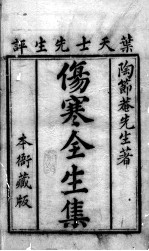 葉天士先生評
陶節菴先生著
傷寒全生集
本衙藏版